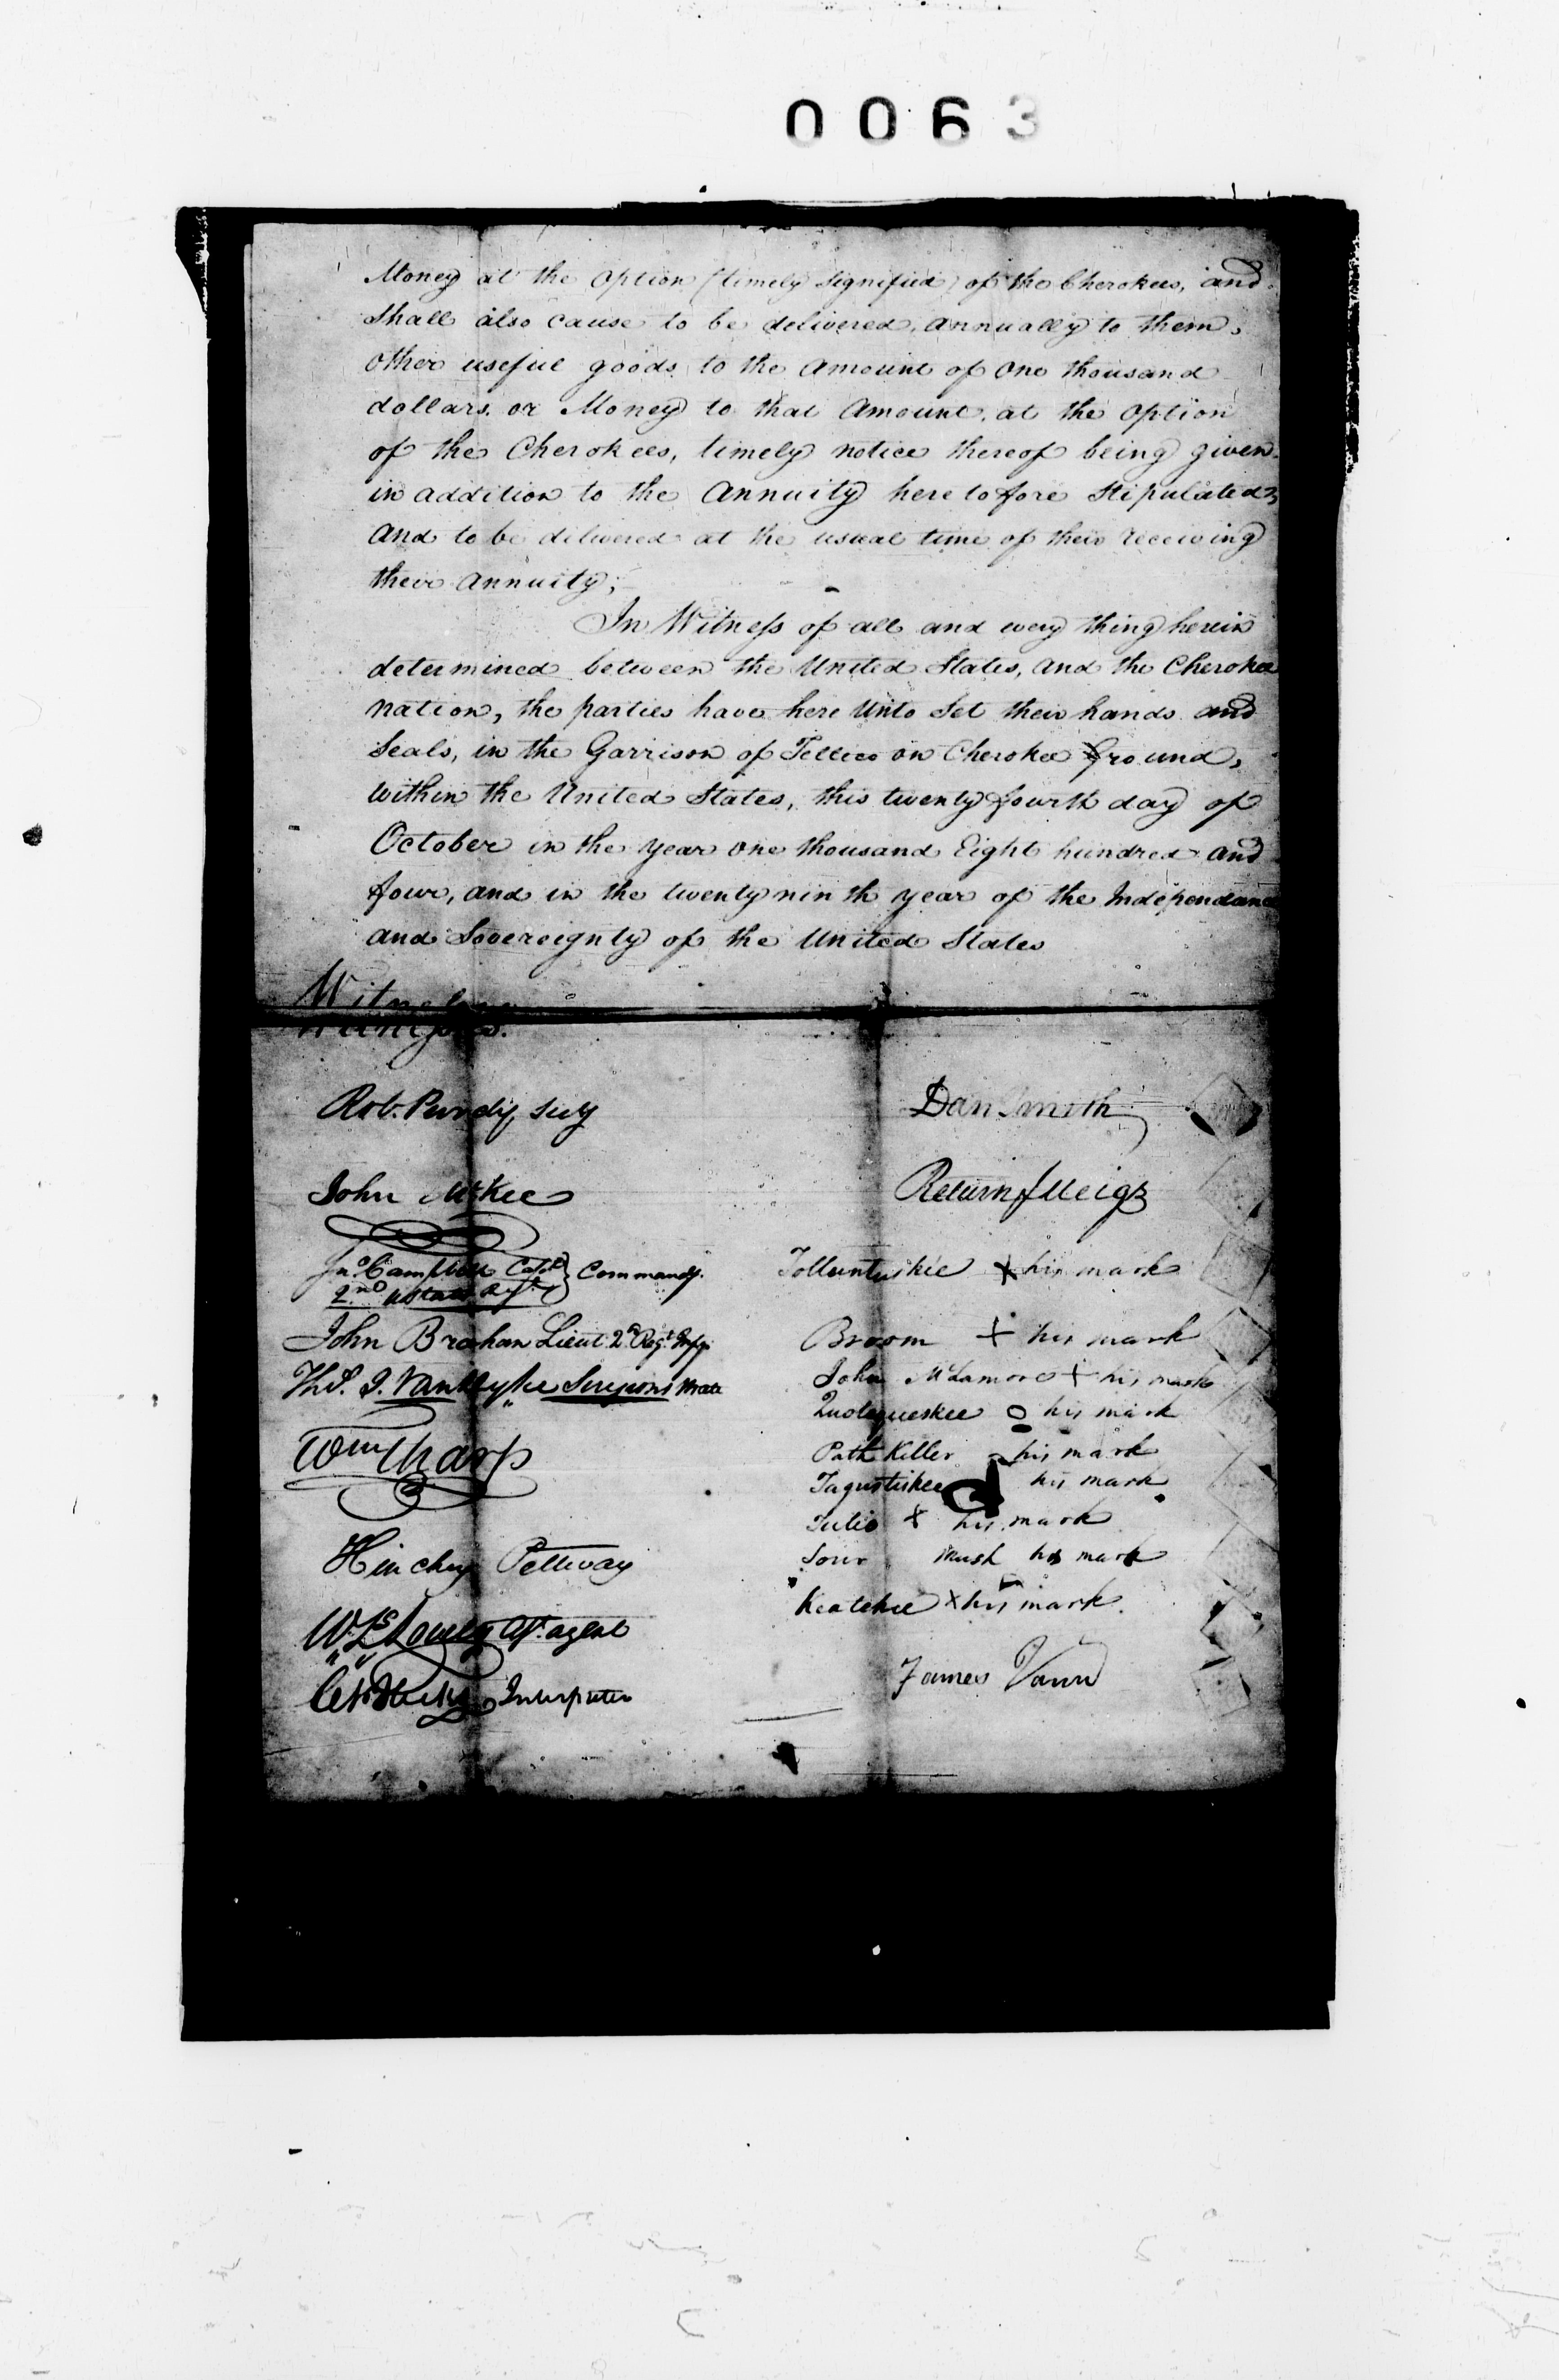 0063
Money at the option (timely signified) of the Cherokees, and
shall also cause to be delivered, annually to them,
other useful goods to the amount of one thousand
dollars or Money to that Amount, at the option
of the Cherokees, timely notice thereof being given
in addition to the Annuity heretofore Stipulated,
and to be delivered at the usual time of their receiving
their annuity;
In Witness of all and every thing herein
determined between the United States, and the Cherokee
nation, the parties have here unto Set their hands and
Seals, in the Garrison of Tellico on Cherokee ground,
within the United States, this twenty fourth day of
October in the year one thousand Eight hundred and
four, and in the twenty ninth year of the Independance
and Sovereignty of the United States
Witnesses.
Rob. Purdy Secy
Dan Smith
John McKee
Return J Meigs
Jno. Campbell Capt. Commandg.
2nd Regt.
Tolluntuskie + his mark
John Brahan Lieut. 2d Regt. Infy.
Broom + his mark
Thos. J. Van Dyke Surgeons Mate
John McLamore + his mark
Quotequeskee o his mark
Wm Tharp
Path Killer his mark
Tagustiskee his mark
Tulio + his mark
Hinchey Pettway
Sour Mush his mark
Keatehee x his mark.
W. L. Lovely Ast. agent
James Vann
Chs Hicks Interpreter